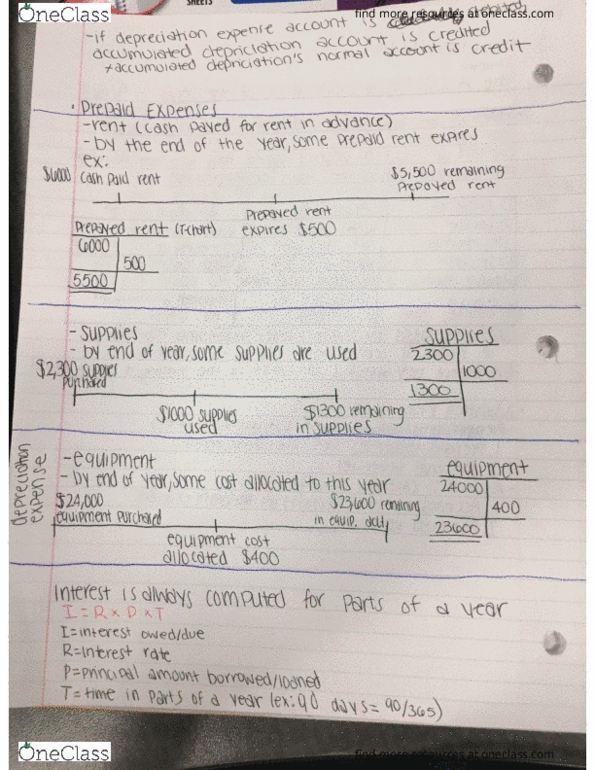 OneClass
SHEETS
find more resources at oneclass.com
-if depreciation expense account is
accumulated depriciation account is credited
*accumulated depriciation's normal account is credit
• Prepaid Expenses
-rent (cash payed for rent in advance)
- by the end of the year, some prepaid rent expires
ex:
$6000 cash paid rent
$5,500 remaining
prepayed rent
Prepayed rent
expires $500
Prepayed rent (T-chart)
6000
500
5500
- Supplies
- by end of year, some supplies are used
$2,300 supplies
purchased
$1000 supplies
used
$1300 remaining
in supplies
Supplies
2300
1000
1300
depreciation
expense
-equipment
- by end of year, some cost allocated to this year
$24,000
equipment purchased
$23,600 remaining
in equip. acct.
equipment cost
allocated $400
equipment
24000
400
23600
Interest is always computed for parts of a year
I = R × P × T
I=interest owed/due
R=Interest rate
P=principal amount borrowed/loaned
T= time in parts of a year (ex: 90 days = 90/365)
OneClass
find more resources at oneclass.com